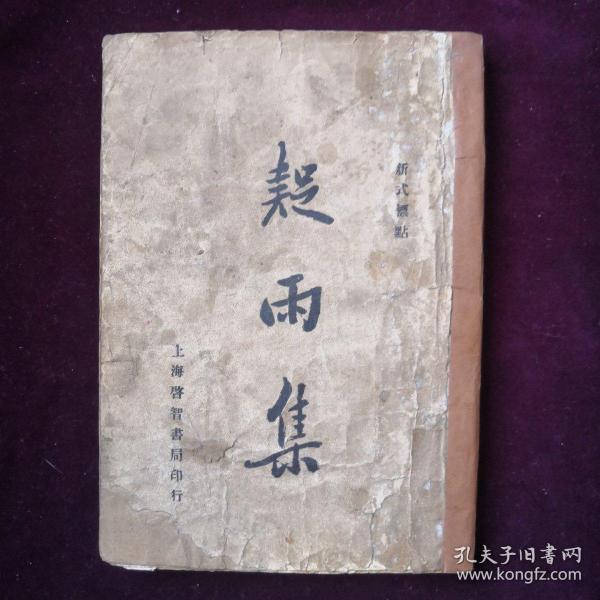 新式標點
疑雨集
上海啓智書局印行
孔夫子旧書网
www.kongfz.com